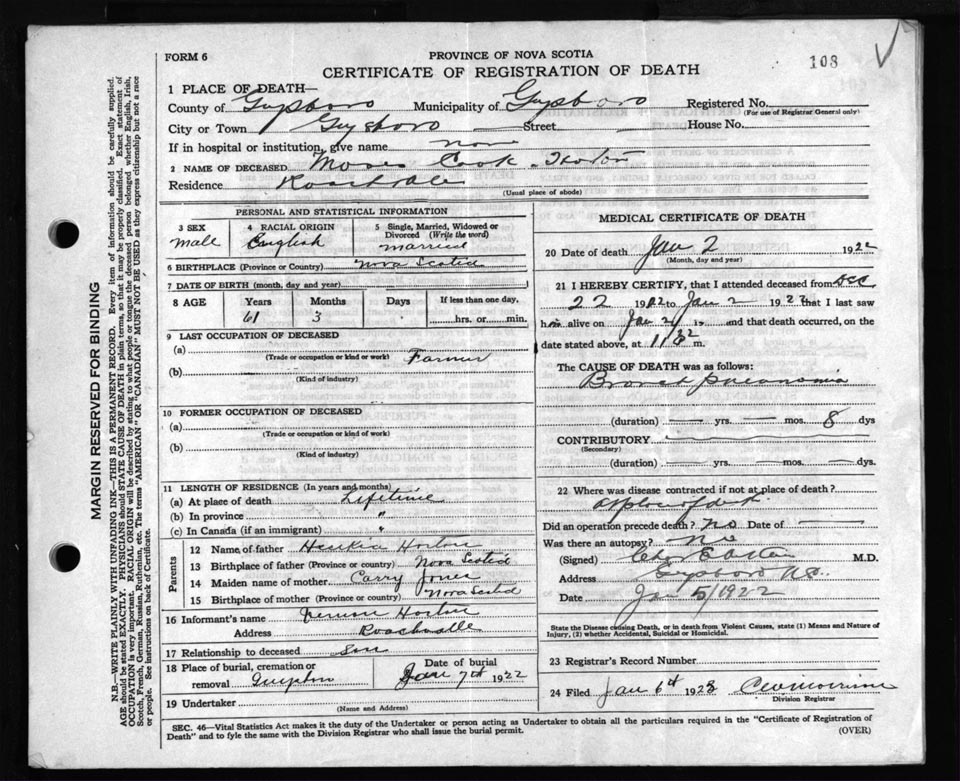 108
FORM 6
PROVINCE OF NOVA SCOTIA
CERTIFICATE OF REGISTRATION OF DEATH
MARGIN RESERVED FOR BINDING
N.B.—WRITE PLAINLY WITH UNFADING INK—THIS IS A PERMANENT RECORD. Every item of information should be carefully supplied.
AGE should be stated EXACTLY. PHYSICIANS should STATE CAUSE OF DEATH in plain terms, so that it may be properly classified. Exact statement of
OCCUPATION is very important. RACIAL ORIGIN will be described by stating to what people or tongue the deceased person belonged whether English, Irish,
Scotch, French, German, Russian, Ruthenian, etc. The terms "AMERICAN" or "CANADIAN" MUST NOT BE USED as they express citizenship but not a race
or people. See instructions on back of Certificate.
1 PLACE OF DEATH—
County of Guysboro Municipality of Guysboro Registered No.
(For use of Registrar General only)
City or Town Guysboro Street House No.
If in hospital or institution, give name None
2 NAME OF DECEASED Moses Cook Horton
Residence
(Usual place of abode)
PERSONAL AND STATISTICAL INFORMATION
3 SEX 4 RACIAL ORIGIN 5 Single, Married, Widowed or Divorced (Write the word)
male English married
6 BIRTHPLACE (Province or Country) Nova Scotia
7 DATE OF BIRTH (month, day and year)
8 AGE Years Months Days If less than one day,
61 3 hrs. or min.
9 LAST OCCUPATION OF DECEASED
(a) Farmer
(Trade or occupation or kind of work)
(b)
(Kind of industry)
10 FORMER OCCUPATION OF DECEASED
(a)
(Trade or occupation or kind of work)
(b)
(Kind of industry)
11 LENGTH OF RESIDENCE (In years and months)
(a) At place of death Lifetime
(b) In province "
(c) In Canada (if an immigrant) "
Parents
12 Name of father Horton
13 Birthplace of father (Province or country) Nova Scotia
14 Maiden name of mother Carry Jones
15 Birthplace of mother (Province or country) Nova Scotia
16 Informant's name Vernon Horton
Address Roachvale
17 Relationship to deceased Son
18 Place of burial, cremation or removal Guysboro Date of burial Jan 7th 1922
19 Undertaker
(Name and Address)
MEDICAL CERTIFICATE OF DEATH
20 Date of death Jan 2 1922
(Month, day and year)
21 I HEREBY CERTIFY, that I attended deceased from Dec
22 to Jan 2 1922 that I last saw
him alive on Jan 2 and that death occurred, on
date stated above, at m.
The CAUSE OF DEATH was as follows:
Bronch pneumonia
(duration) — yrs. — mos. 8 dys
CONTRIBUTORY
(Secondary)
(duration) — yrs. — mos. — dys.
22 Where was disease contracted if not at place of death?
Did an operation precede death? No Date of —
Was there an autopsy? No
(Signed) M.D.
Address Guysboro N.S.
Date Jan 5/1922
State the Disease causing Death, or in death from Violent Causes, state (1) Means and Nature of
Injury, (2) whether Accidental, Suicidal or Homicidal.
23 Registrar's Record Number
24 Filed Jan 6th
Division Registrar
SEC. 46—Vital Statistics Act makes it the duty of the Undertaker or person acting as Undertaker to obtain all the particulars required in the "Certificate of Registration of
Death" and to fyle the same with the Division Registrar who shall issue the burial permit. (OVER)